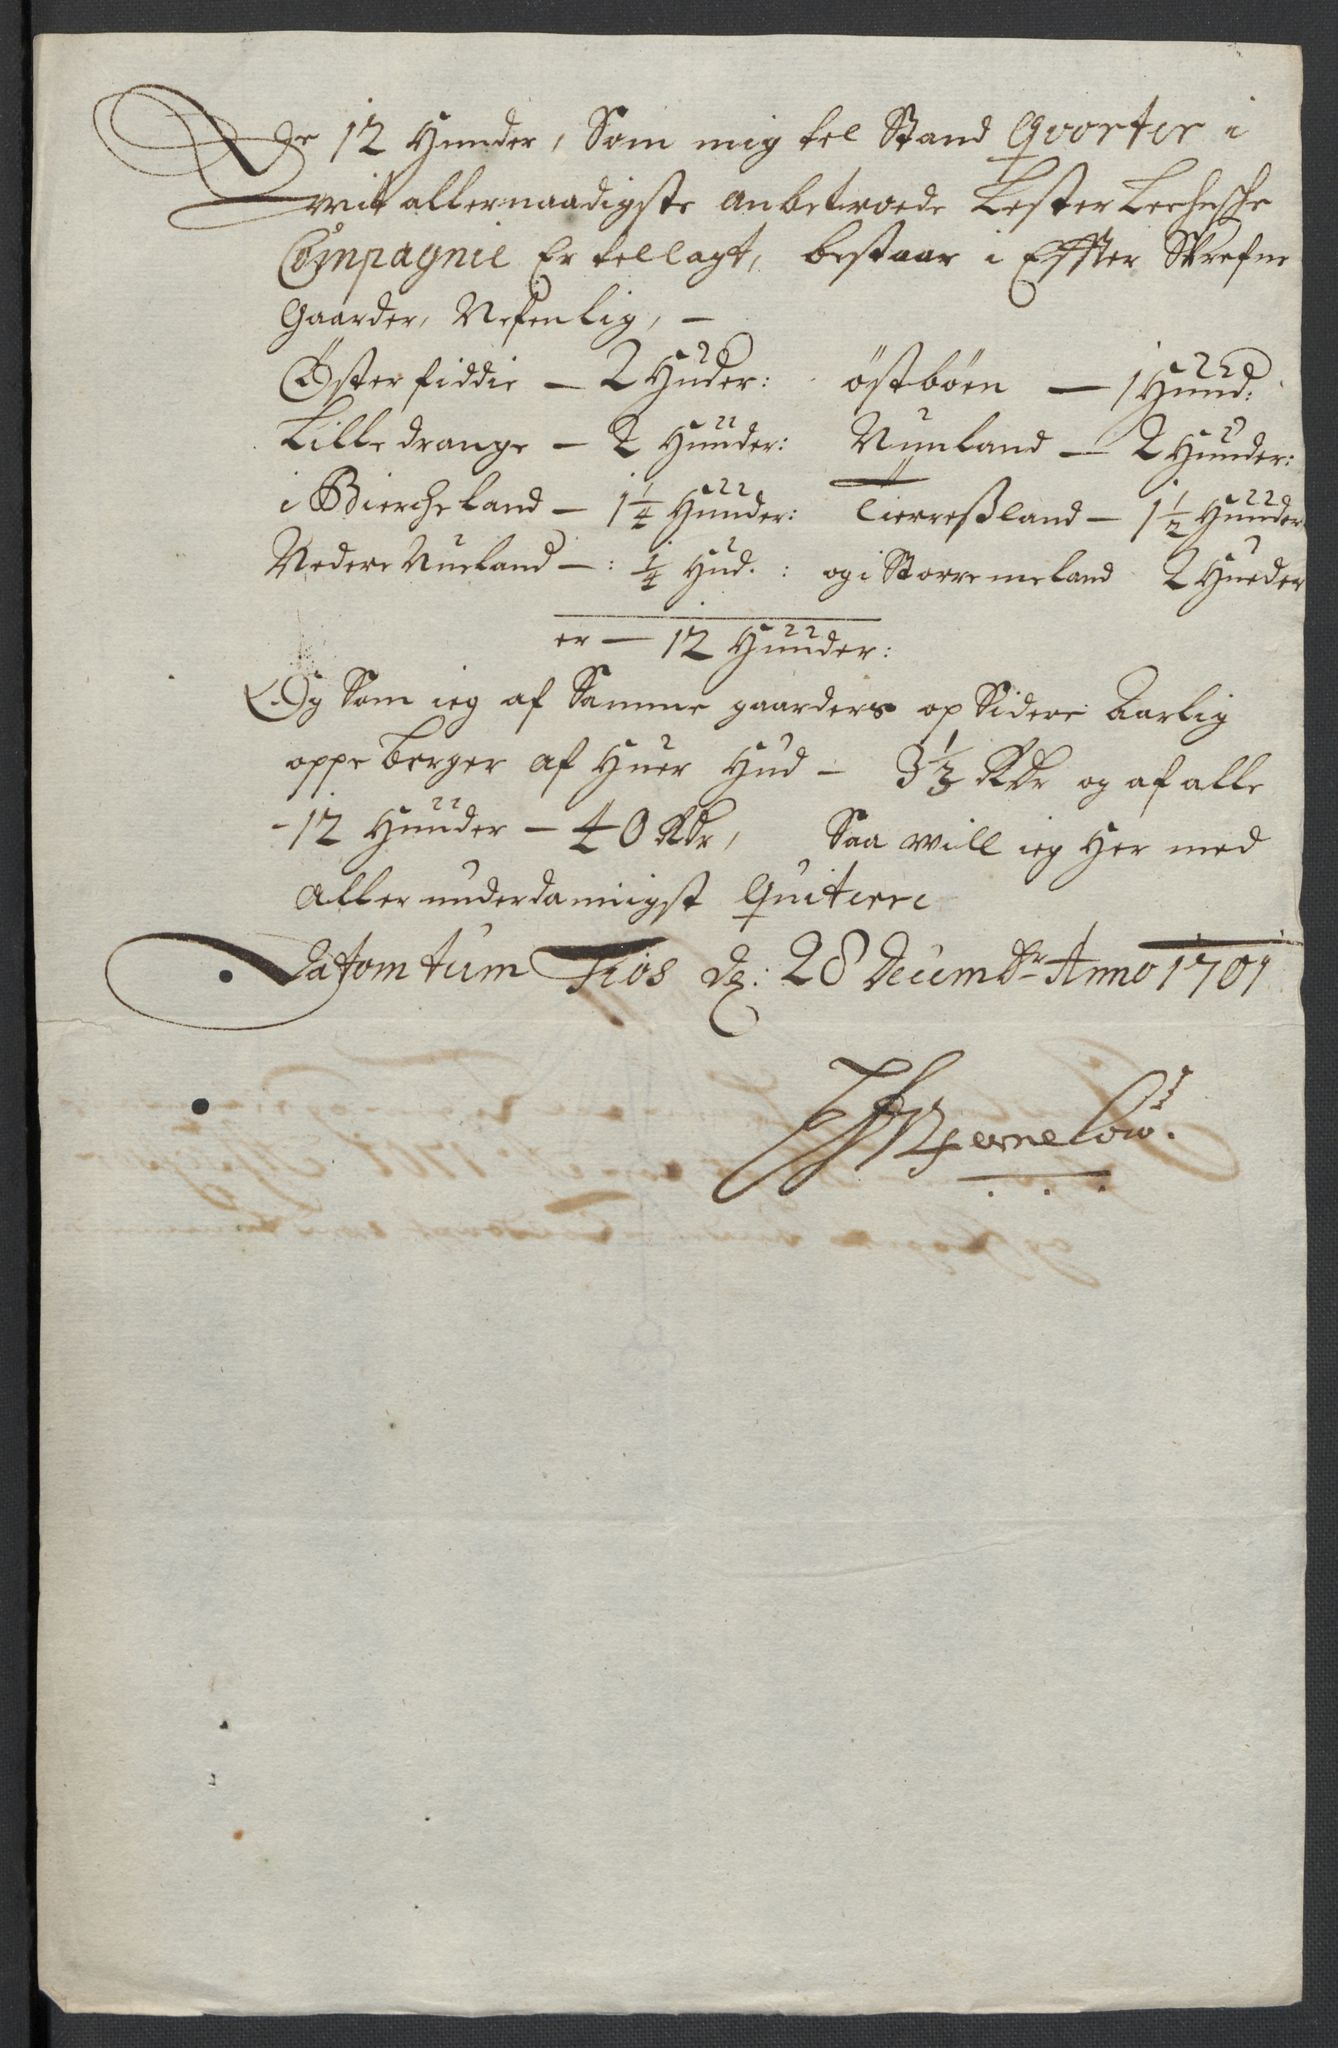 De 12 Hunder, Som mig tel Stand Qvorter i
mit allernaadigste Anbetroede Lester Leehnsche
Compagnie Er tellagt, bestaar i Effter Skrefne
Gaarder, Nefenlig, —
Österfiddie — 2 Huder: östbóen — 1 Hund:
Lille drange — 2 Hunder: Nunland — 2 Hunder:
i Bierche land — 1 1/4 Hunder: Tierreßland — 1 1/2 Hunder
Nedere Nueland — : 1/4 Hud. : og i Storremeland 2 Hueder
er — 12 Hunder:
Og Som ieg af Samme gaarders op Sidere Aarlig
oppe berger af Huer Hud — 3 1/3 Rdr og af alle
- 12 Hunder — 40 Rdr, Saa will ieg Her med
Allerunderdannigst Quitere
Datom tum Fios dx: 28 Decembr Anno 1701